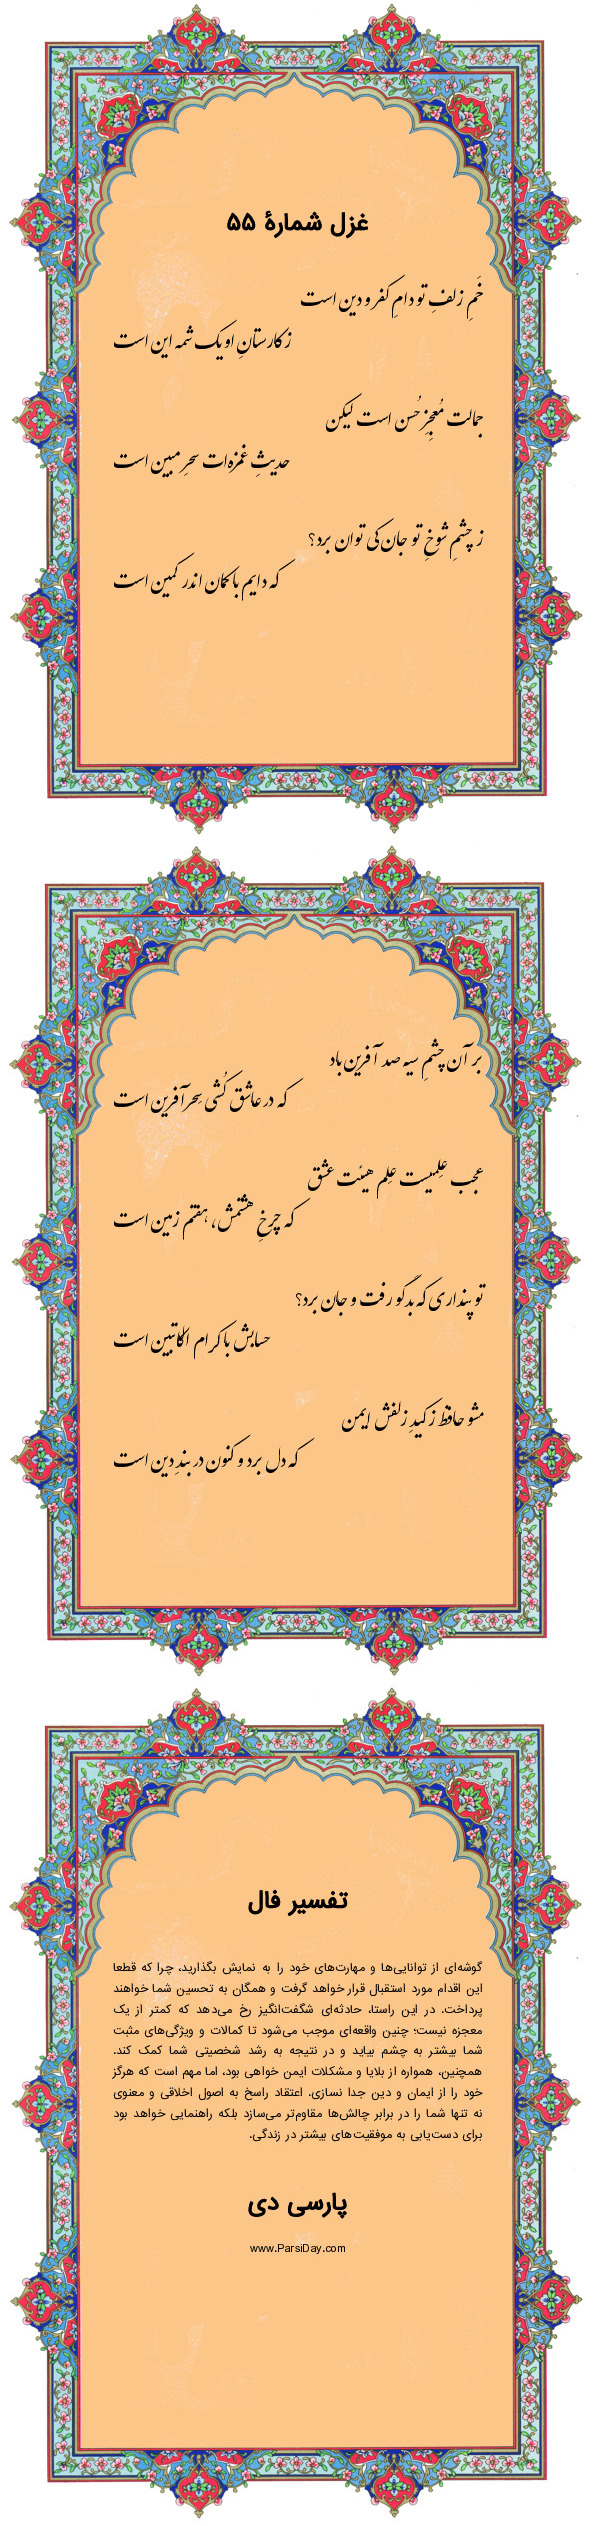 غزل شمارهٔ ۵۵
خَمِ زلفِ تو دامِ کفر و دین است
ز کارستانِ او یک شمه این است
جمالت مُعجِزِ حُسن است لیکن
حدیثِ غمزه‌ات سحرِ مبین است
ز چشمِ شوخِ تو جان کی توان برد؟
که دایم با کمان اندر کمین است
بر آن چشمِ سیه صد آفرین باد
که در عاشق کُشی سِحرآفرین است
عجب عِلمیست عِلم هیئت عشق
که چرخِ هشتمش، هفتم زمین است
تو پنداری که بدگو رفت و جان برد؟
حسابش با کرام الکاتبین است
مشو حافظ ز کیدِ زلفش ایمن
که دل برد و کنون در بندِ دین است
تفسیر فال
گوشه‌ای از توانایی‌ها و مهارت‌های خود را به نمایش بگذارید، چرا که قطعا
این اقدام مورد استقبال قرار خواهد گرفت و همگان به تحسین شما خواهند
پرداخت. در این راستا، حادثه‌ای شگفت‌انگیز رخ می‌دهد که کمتر از یک
معجزه نیست؛ چنین واقعه‌ای موجب می‌شود تا کمالات و ویژگی‌های مثبت
شما بیشتر به چشم بیاید و در نتیجه به رشد شخصیتی شما کمک کند.
همچنین، همواره از بلایا و مشکلات ایمن خواهی بود، اما مهم است که هرگز
خود را از ایمان و دین جدا نسازی. اعتقاد راسخ به اصول اخلاقی و معنوی
نه تنها شما را در برابر چالش‌ها مقاوم‌تر می‌سازد بلکه راهنمایی خواهد بود
برای دست‌یابی به موفقیت‌های بیشتر در زندگی.
پارسی دی
www.ParsiDay.com